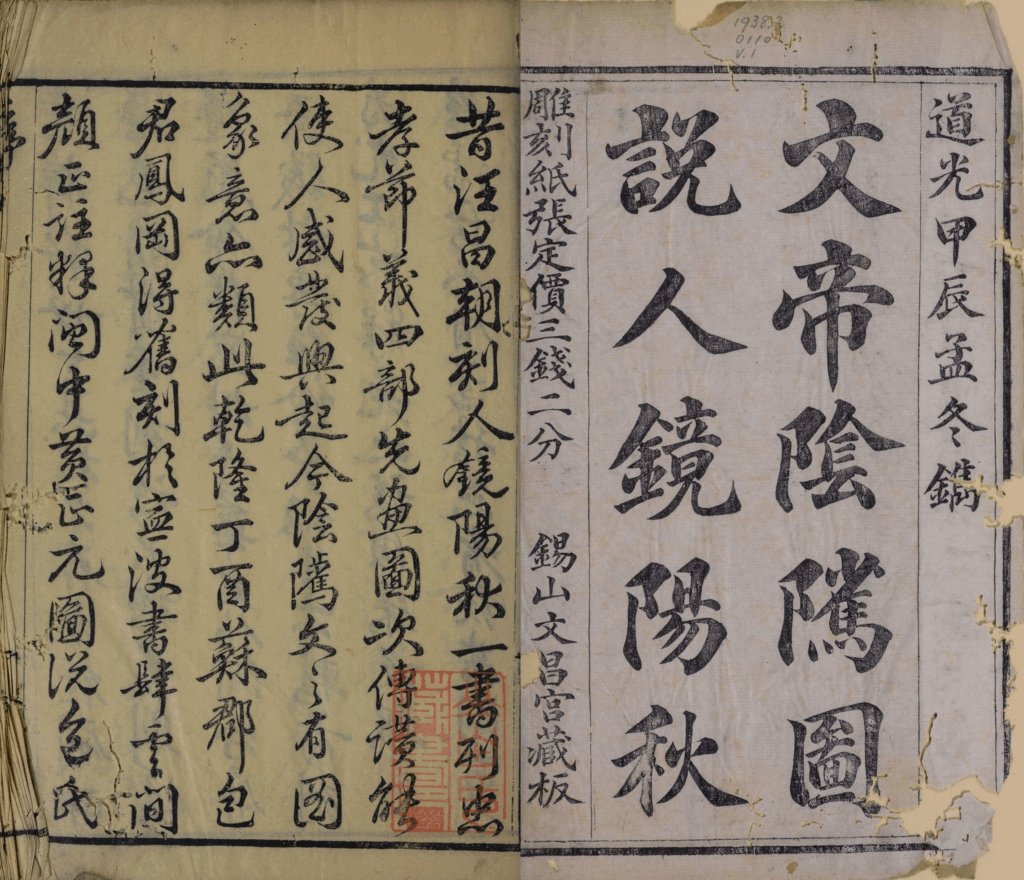 0110
v.1
道光甲辰孟冬鐫
文帝陰隲圖
説人鏡陽秋
雕刻紙張定價三錢二分 錫山文昌宮藏板
昔汪昌朝刻人鏡陽秋一書列忠
孝節義四部先畫圖次傳讚能
使人感發興起今陰隲文之有圖
象意亦類此乾隆丁酉蘇郡包
君鳳岡得舊刻於寧波書肆雲間
顏正註釋閩中黃正元圖説包氏